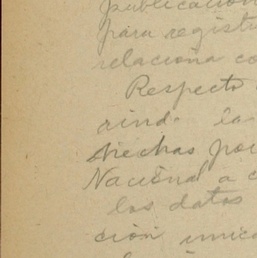 publicacion
para registr
relaciona co
Respecto
rindo la
hechas por
Nacional a c
los datos
ción unica